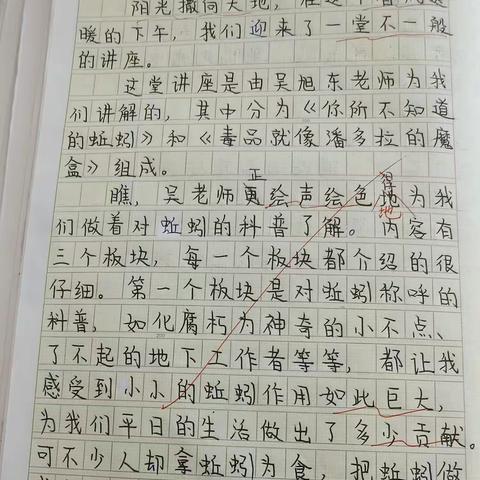 阳光撒向大地，在这个
暖的下午，我们迎来了一堂不一般
的讲座。
这堂讲座是由吴旭东老师为我
们讲解的，其中分为《你所不知道
的蚯蚓》和《毒品就像潘多拉的魔
盒》组成。
正
得
瞧，吴老师更绘声绘色地为我
地
们做着对蚯蚓的科普了解。内容有
三个板块，每一个板块都介绍的很
仔细。第一个板块是对蚯蚓称呼的
科普，如化腐朽为神奇的小不点、
了不起的地下工作者等等，都让我
感受到小小的蚯蚓作用如此巨大，
为我们平日的生活做出了多少贡献。
可不少人却拿蚯蚓为食，把蚯蚓做